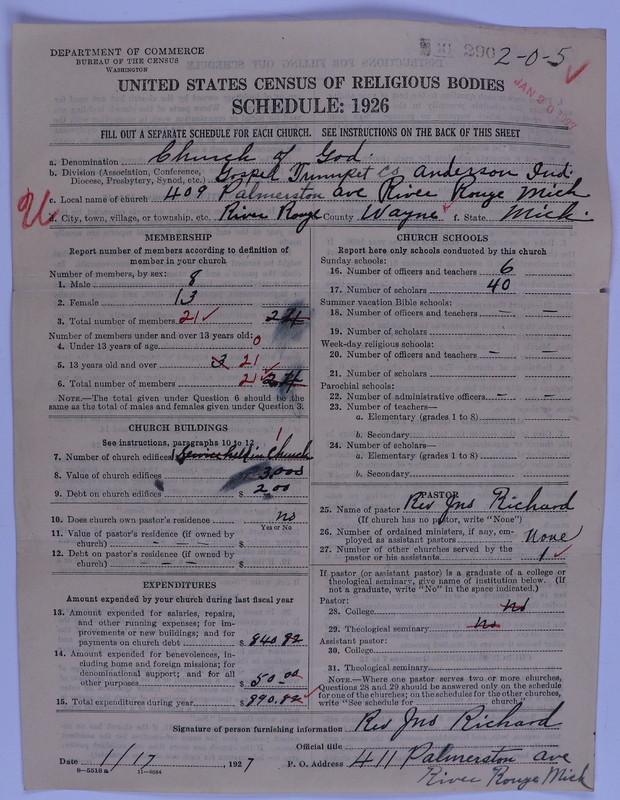 DEPARTMENT OF COMMERCE
BUREAU OF THE CENSUS
WASHINGTON
2-0-5
UNITED STATES CENSUS OF RELIGIOUS BODIES
SCHEDULE: 1926
FILL OUT A SEPARATE SCHEDULE FOR EACH CHURCH. SEE INSTRUCTIONS ON THE BACK OF THIS SHEET
a. Denomination Church of God.
b. Division (Association, Conference, Diocese, Presbytery, Synod, etc.) Gospel Trumpet Co Anderson Ind.
c. Local name of church 409 Palmerston ave River Rouge Mich
d. City, town, village, or township, etc. River Rouge County Wayne f. State Mich.
MEMBERSHIP
Report number of members according to definition of
member in your church
Number of members, by sex:
1. Male 8
2. Female 13
3. Total number of members 21 24
Number of members under and over 13 years old:
4. Under 13 years of age 0
5. 13 years old and over 3 21
6. Total number of members 21 24
NOTE.—The total given under Question 6 should be the
same as the total of males and females given under Question 3.
CHURCH BUILDINGS
See instructions, paragraphs 10 to 12
7. Number of church edifices Service held in Church 1
8. Value of church edifices $ 3,000
9. Debt on church edifices $ 200
10. Does church own pastor's residence no
Yes or No
11. Value of pastor's residence (if owned by
church) – – – $
12. Debt on pastor's residence (if owned by
church) – – – $
EXPENDITURES
Amount expended by your church during last fiscal year
13. Amount expended for salaries, repairs,
and other running expenses; for im-
provements or new buildings; and for
payments on church debt $ 840.82
14. Amount expended for benevolences, in-
cluding home and foreign missions; for
denominational support; and for all
other purposes $ 50.00
15. Total expenditures during year $ 890.82
CHURCH SCHOOLS
Report here only schools conducted by this church
Sunday schools:
16. Number of officers and teachers 6
17. Number of scholars 40
Summer vacation Bible schools:
18. Number of officers and teachers – –
19. Number of scholars
Week-day religious schools:
20. Number of officers and teachers – –
21. Number of scholars
Parochial schools:
22. Number of administrative officers – –
23. Number of teachers—
a. Elementary (grades 1 to 8)
b. Secondary
24. Number of scholars—
a. Elementary (grades 1 to 8)
b. Secondary
PASTOR
25. Name of pastor Rev Jno Richard
(If church has no pastor, write "None")
26. Number of ordained ministers, if any, em-
ployed as assistant pastors None
27. Number of other churches served by the
pastor or his assistants 1
If pastor (or assistant pastor) is a graduate of a college or
theological seminary, give name of institution below. (If
not a graduate, write "No" in the space indicated.)
Pastor:
28. College No
29. Theological seminary No
Assistant pastor:
30. College
31. Theological seminary
NOTE.—Where one pastor serves two or more churches,
Questions 28 and 29 should be answered only on the schedule
for one of the churches; on the schedules for the other churches,
write "See schedule for church."
Signature of person furnishing information Rev Jno Richard
Official title
Date 1/17, 1927 P. O. Address 411 Palmerston ave
8—5518 a 11—8654 River Rouge Mich